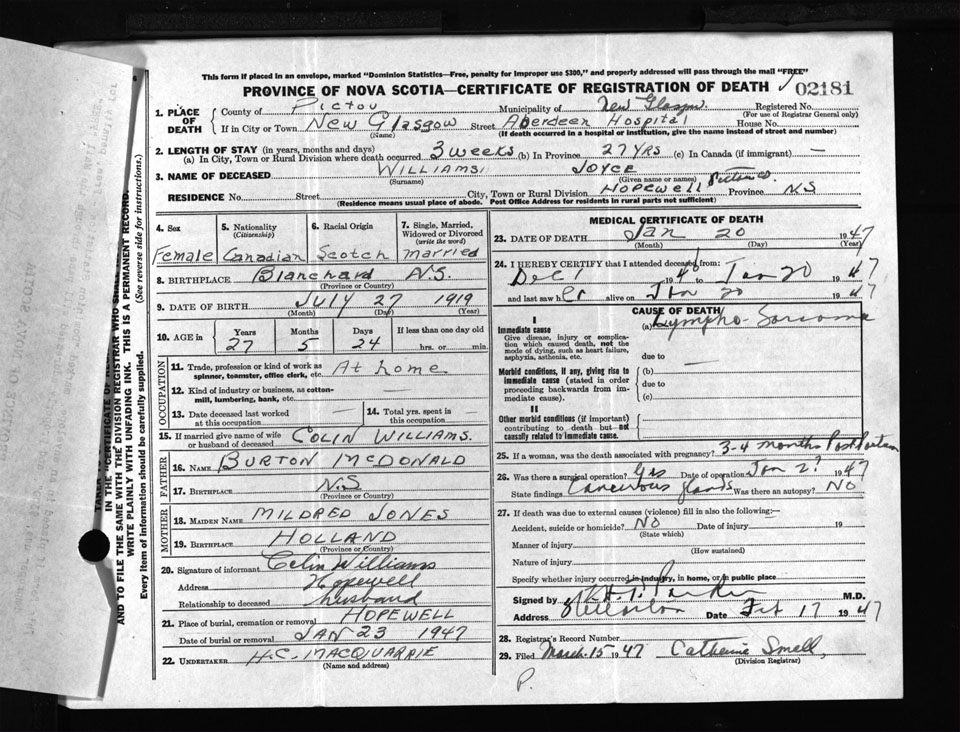 This form if placed in an envelope, marked "Dominion Statistics—Free, penalty for improper use $300," and properly addressed will pass through the mail "FREE"
PROVINCE OF NOVA SCOTIA—CERTIFICATE OF REGISTRATION OF DEATH 02181
1. PLACE OF DEATH County of Pictou Municipality of New Glasgow. Registered No.
(For use of Registrar General only)
If in City or Town New Glasgow Street Aberdeen Hospital House No.
(Name) (If death occurred in a hospital or institution, give the name instead of street and number)
2. LENGTH OF STAY (in years, months and days)
(a) In City, Town or Rural Division where death occurred 3 weeks (b) In Province 27 YRS (c) In Canada (if immigrant) —
3. NAME OF DECEASED WILLIAMS, JOYCE
(Surname) (Given name or names)
RESIDENCE No. Street City, Town or Rural Division HOPEWELL Pictou Co. Province N.S
(Residence means usual place of abode. Post Office Address for residents in rural parts not sufficient)
4. Sex Female
5. Nationality (Citizenship) Canadian
6. Racial Origin Scotch
7. Single, Married, Widowed or Divorced (write the word) married
8. BIRTHPLACE Blanchard N.S.
(Province or Country)
9. DATE OF BIRTH JULY 27 1919
(Month) (Day) (Year)
10. AGE in Years 27 Months 5 Days 24 If less than one day old hrs. or min.
OCCUPATION
11. Trade, profession or kind of work as spinner, teamster, office clerk, etc. At home
12. Kind of industry or business, as cotton-mill, lumbering, bank, etc. —
13. Date deceased last worked at this occupation —
14. Total yrs. spent in this occupation —
15. If married give name of wife or husband of deceased COLIN WILLIAMS.
FATHER
16. NAME BURTON McDONALD
17. BIRTHPLACE N.S
(Province or Country)
MOTHER
18. MAIDEN NAME MILDRED JONES
19. BIRTHPLACE HOLLAND
(Province or Country)
20. Signature of informant Colin Williams
Address Hopewell
Relationship to deceased husband
21. Place of burial, cremation or removal HOPEWELL
Date of burial or removal JAN 23 1947
22. UNDERTAKER H.C. MACQUARRIE
(Name and address)
MEDICAL CERTIFICATE OF DEATH
23. DATE OF DEATH Jan 20 1947
(Month) (Day) (Year)
24. I HEREBY CERTIFY that I attended deceased from:
Dec 1 1946 to Jan 20 1947
and last saw her alive on Jan 20 1947
CAUSE OF DEATH
I
Immediate cause
Give disease, injury or complication which caused death, not the mode of dying, such as heart failure, asphyxia, asthenia, etc.
(a) Lympho-Sarcoma
due to —
Morbid conditions, if any, giving rise to immediate cause (stated in order proceeding backwards from immediate cause).
(b)
due to
(c)
II
Other morbid conditions (if important) contributing to death but not causally related to immediate cause.
25. If a woman, was the death associated with pregnancy? 3-4 months Postpartum
26. Was there a surgical operation? Yes Date of operation Jan 2? 1947
State findings Cancerous glands Was there an autopsy? NO
27. If death was due to external causes (violence) fill in also the following:—
Accident, suicide or homicide? NO Date of injury 19
(State which)
Manner of injury
(How sustained)
Nature of injury
Specify whether injury occurred in industry, in home, or in public place
Signed by M.D.
Address Date Feb 17 1947
28. Registrar's Record Number
29. Filed March 15 1947 Catherine Small,
(Division Registrar)
P.
IN THE "CERTIFICATE OF
AND TO FILE THE SAME WITH THE DIVISION REGISTRAR WHO
WRITE PLAINLY WITH UNFADING INK. THIS IS A PERMANENT RECORD.
Every item of information should be carefully supplied. (See reverse side for instructions.)